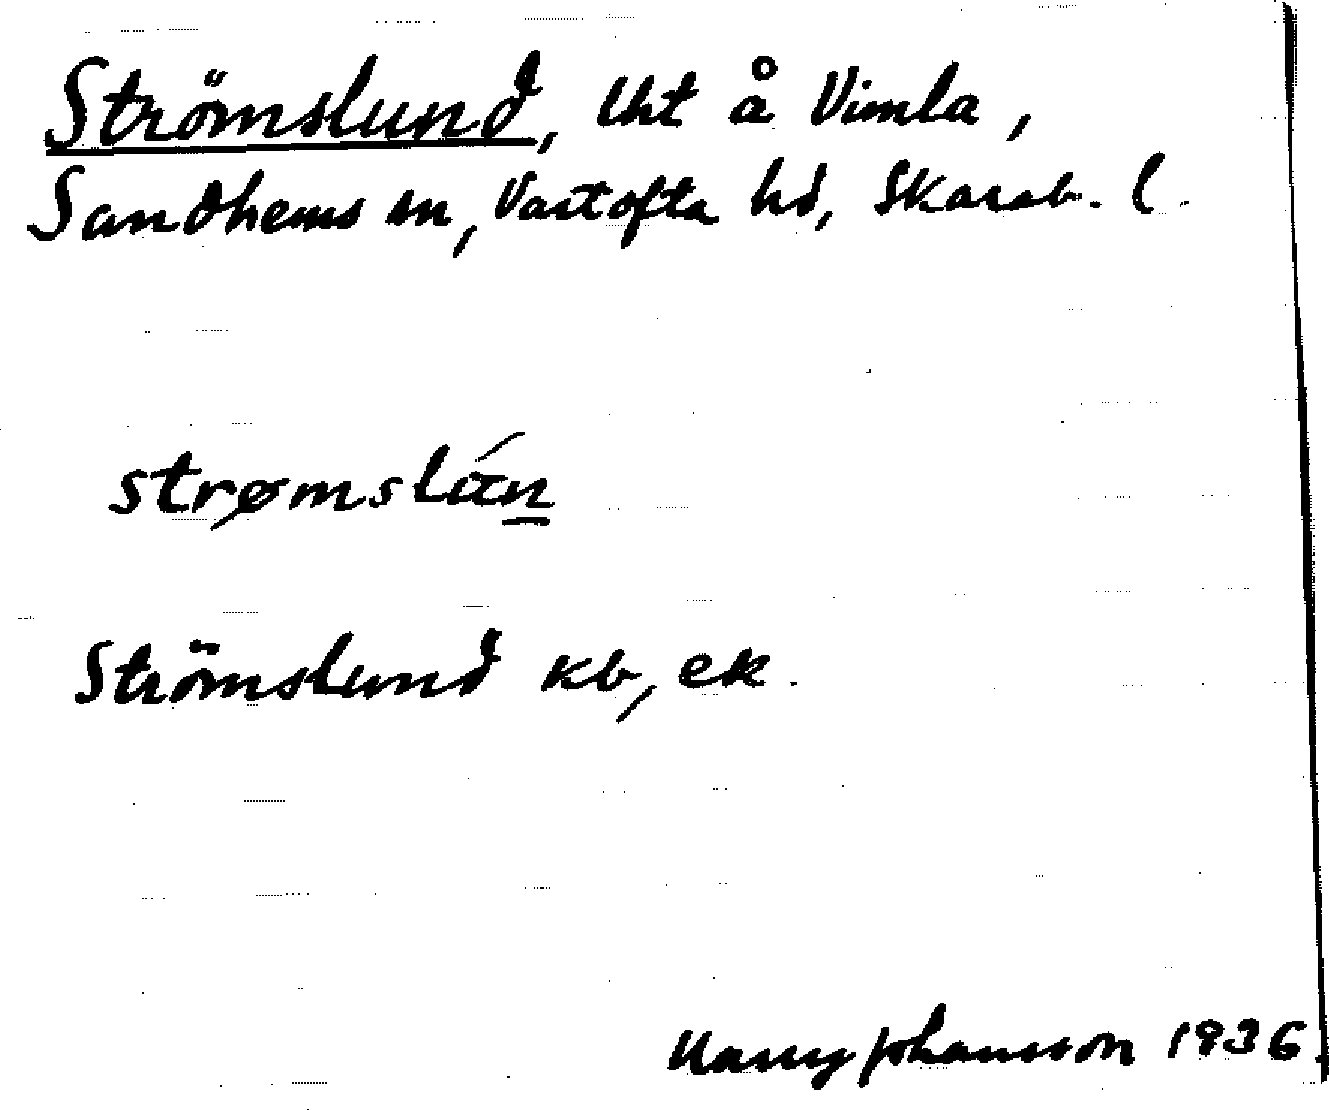 Strömslund, lht å Vimla,
Sandhems sn, Vartofta hd, Skarab. l.
strømslán
Strömslund kb, ek.
Harry Johansson 1936.